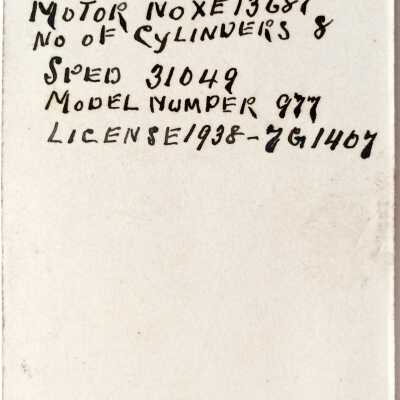 MOTOR NO XE13681
NO OF CYLINDERS 8
SPED 31049
MODEL NUMPER 977
LICENSE 1938-7G1407